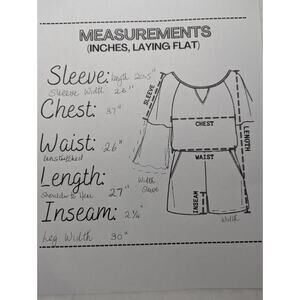 MEASUREMENTS
(INCHES, LAYING FLAT)
Sleeve: length 20.5"
Sleeve Width 26"
Chest: 37"
Waist: 26"
Unstretched
Length:
Shoulder to Hem 27"
Inseam: 2½"
Leg Width 30"
SLEEVE
CHEST
LENGTH
WAIST
INSEAM
Width
Sleeve
Width